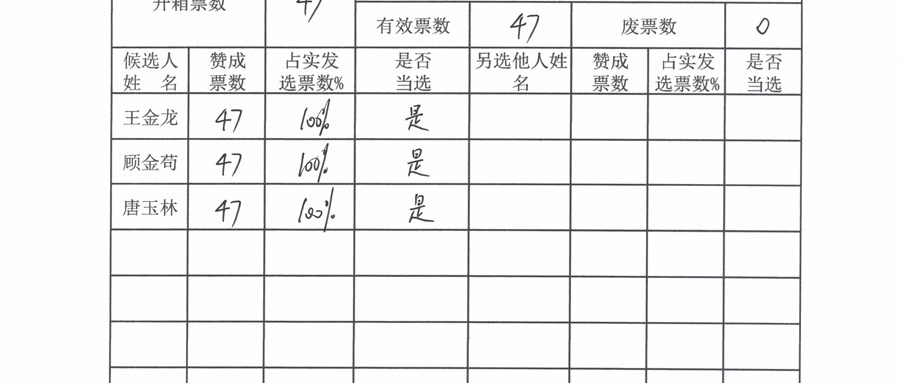 开箱票数 47
有效票数 47 废票数 0
候选人姓名 赞成票数 占实发选票数% 是否当选 另选他人姓名 赞成票数 占实发选票数% 是否当选
王金龙 47 100% 是
顾金苟 47 100% 是
唐玉林 47 100% 是